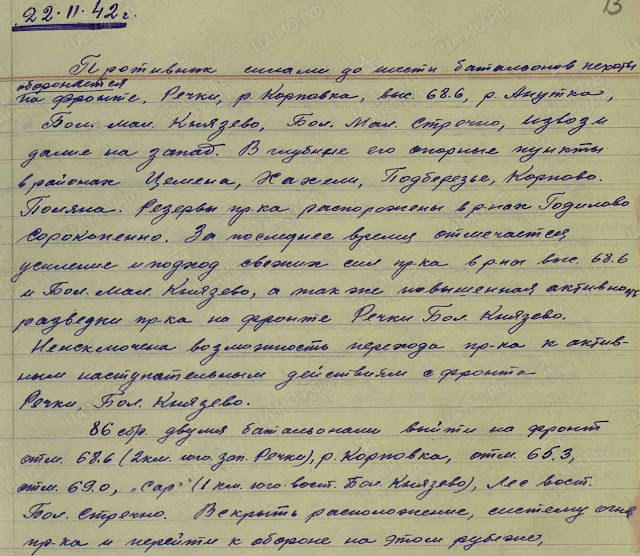 13
22.11.42 г.
Противник силами до шести батальонов пехоты
обороняется
на фронте, Речки, р. Карповка, выс. 68.6, р. Анутка,
Бол. мал. Князево, Бол. Мал. Стречно, Извоз и
далее на запад. В глубине его опорные пункты
в районах Цемена, Хахели, Подберезье, Карпово.
Поляна. Резервы пр-ка распорожены в р-нах Годилово
Сорокопенно. За последнее время отмечается
усиление и подход свежих сил пр-ка в р-ны выс. 68.6
и Бол. Мал. Князево, а так же повышенная активность
разведки пр-ка на фронте Речки Бол. Князево.
Неисключена возможность перехода пр-ка к актив-
ным наступательным действиям с фронта
Речки, Бол. Князево.
86 сбр. двумя батальонами выйти на фронт
отм. 68.6 (2 км. юго. зап. Речки), р. Карповка, отм. 65.3,
отм. 69.0, "Сар" (1 км. юго. вост. Бол. Князево), Лес вост.
Бол. Стречно. Вскрыть расположение, систему огня
пр-ка и перейти к обороне на этом рубеже,